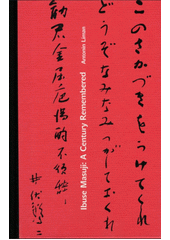 このさかづきをうけてくれ
どうぞなみなみつがしておくれ
勧君金屈巵満酌不須辞
井伏鱒二
Ibuse Masuji: A Century Remembered
Antonin Líman